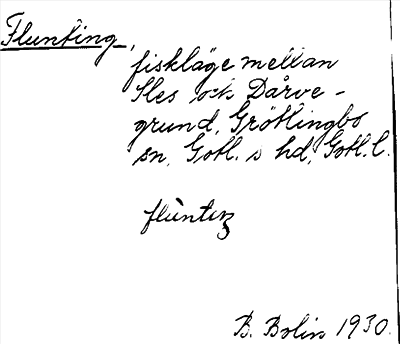 Flunting,
fiskläge mellan
Sles och Dårve-
grund, Grötlingbo
sn, Gotl. s hd, Gotl. l.
flùntiŋ
B. Bolin 1930.